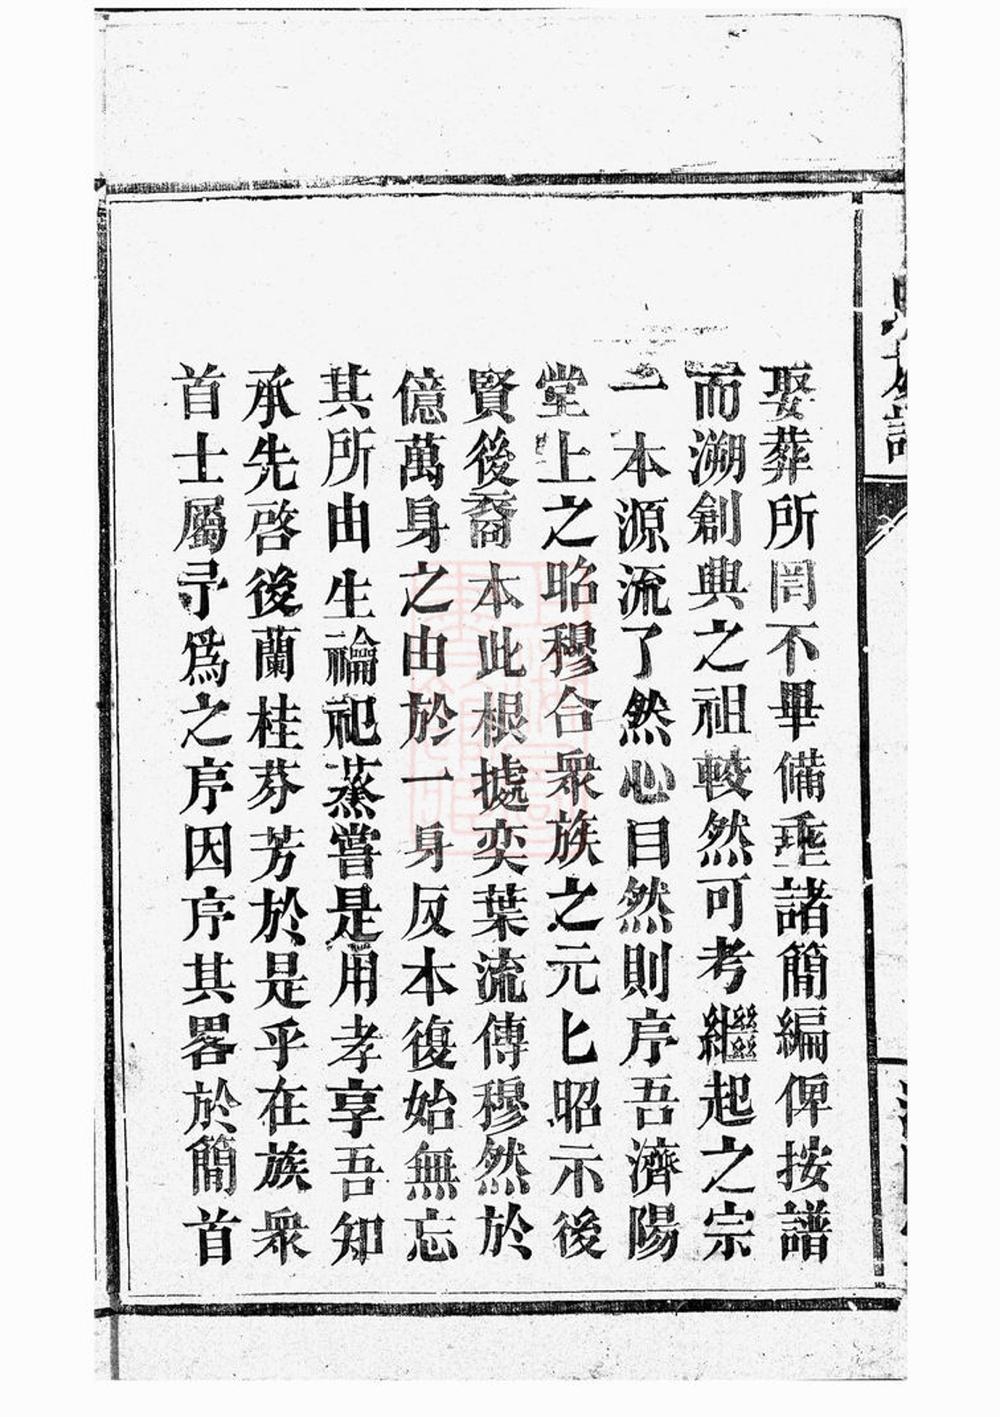 娶葬所罔不畢備埀諸簡編俾按譜
而溯創興之祖較然可考繼起之宗
一本源流了然心目然則序吾濟陽
堂上之昭穆合衆族之元匕昭示後
賢後裔本此根㨿奕葉流傳穆然於
億萬身之由於一身反本復始無忘
其所由生禴祀蒸嘗是用孝享吾知
承先啓後蘭桂芬芳於是乎在族衆
首士屬予爲之序因序其畧於簡首